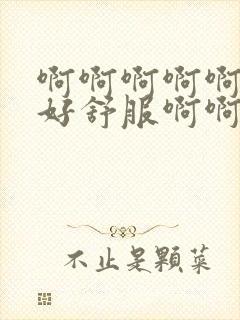 啊啊啊啊啊
好舒服啊啊
不止是顆菜